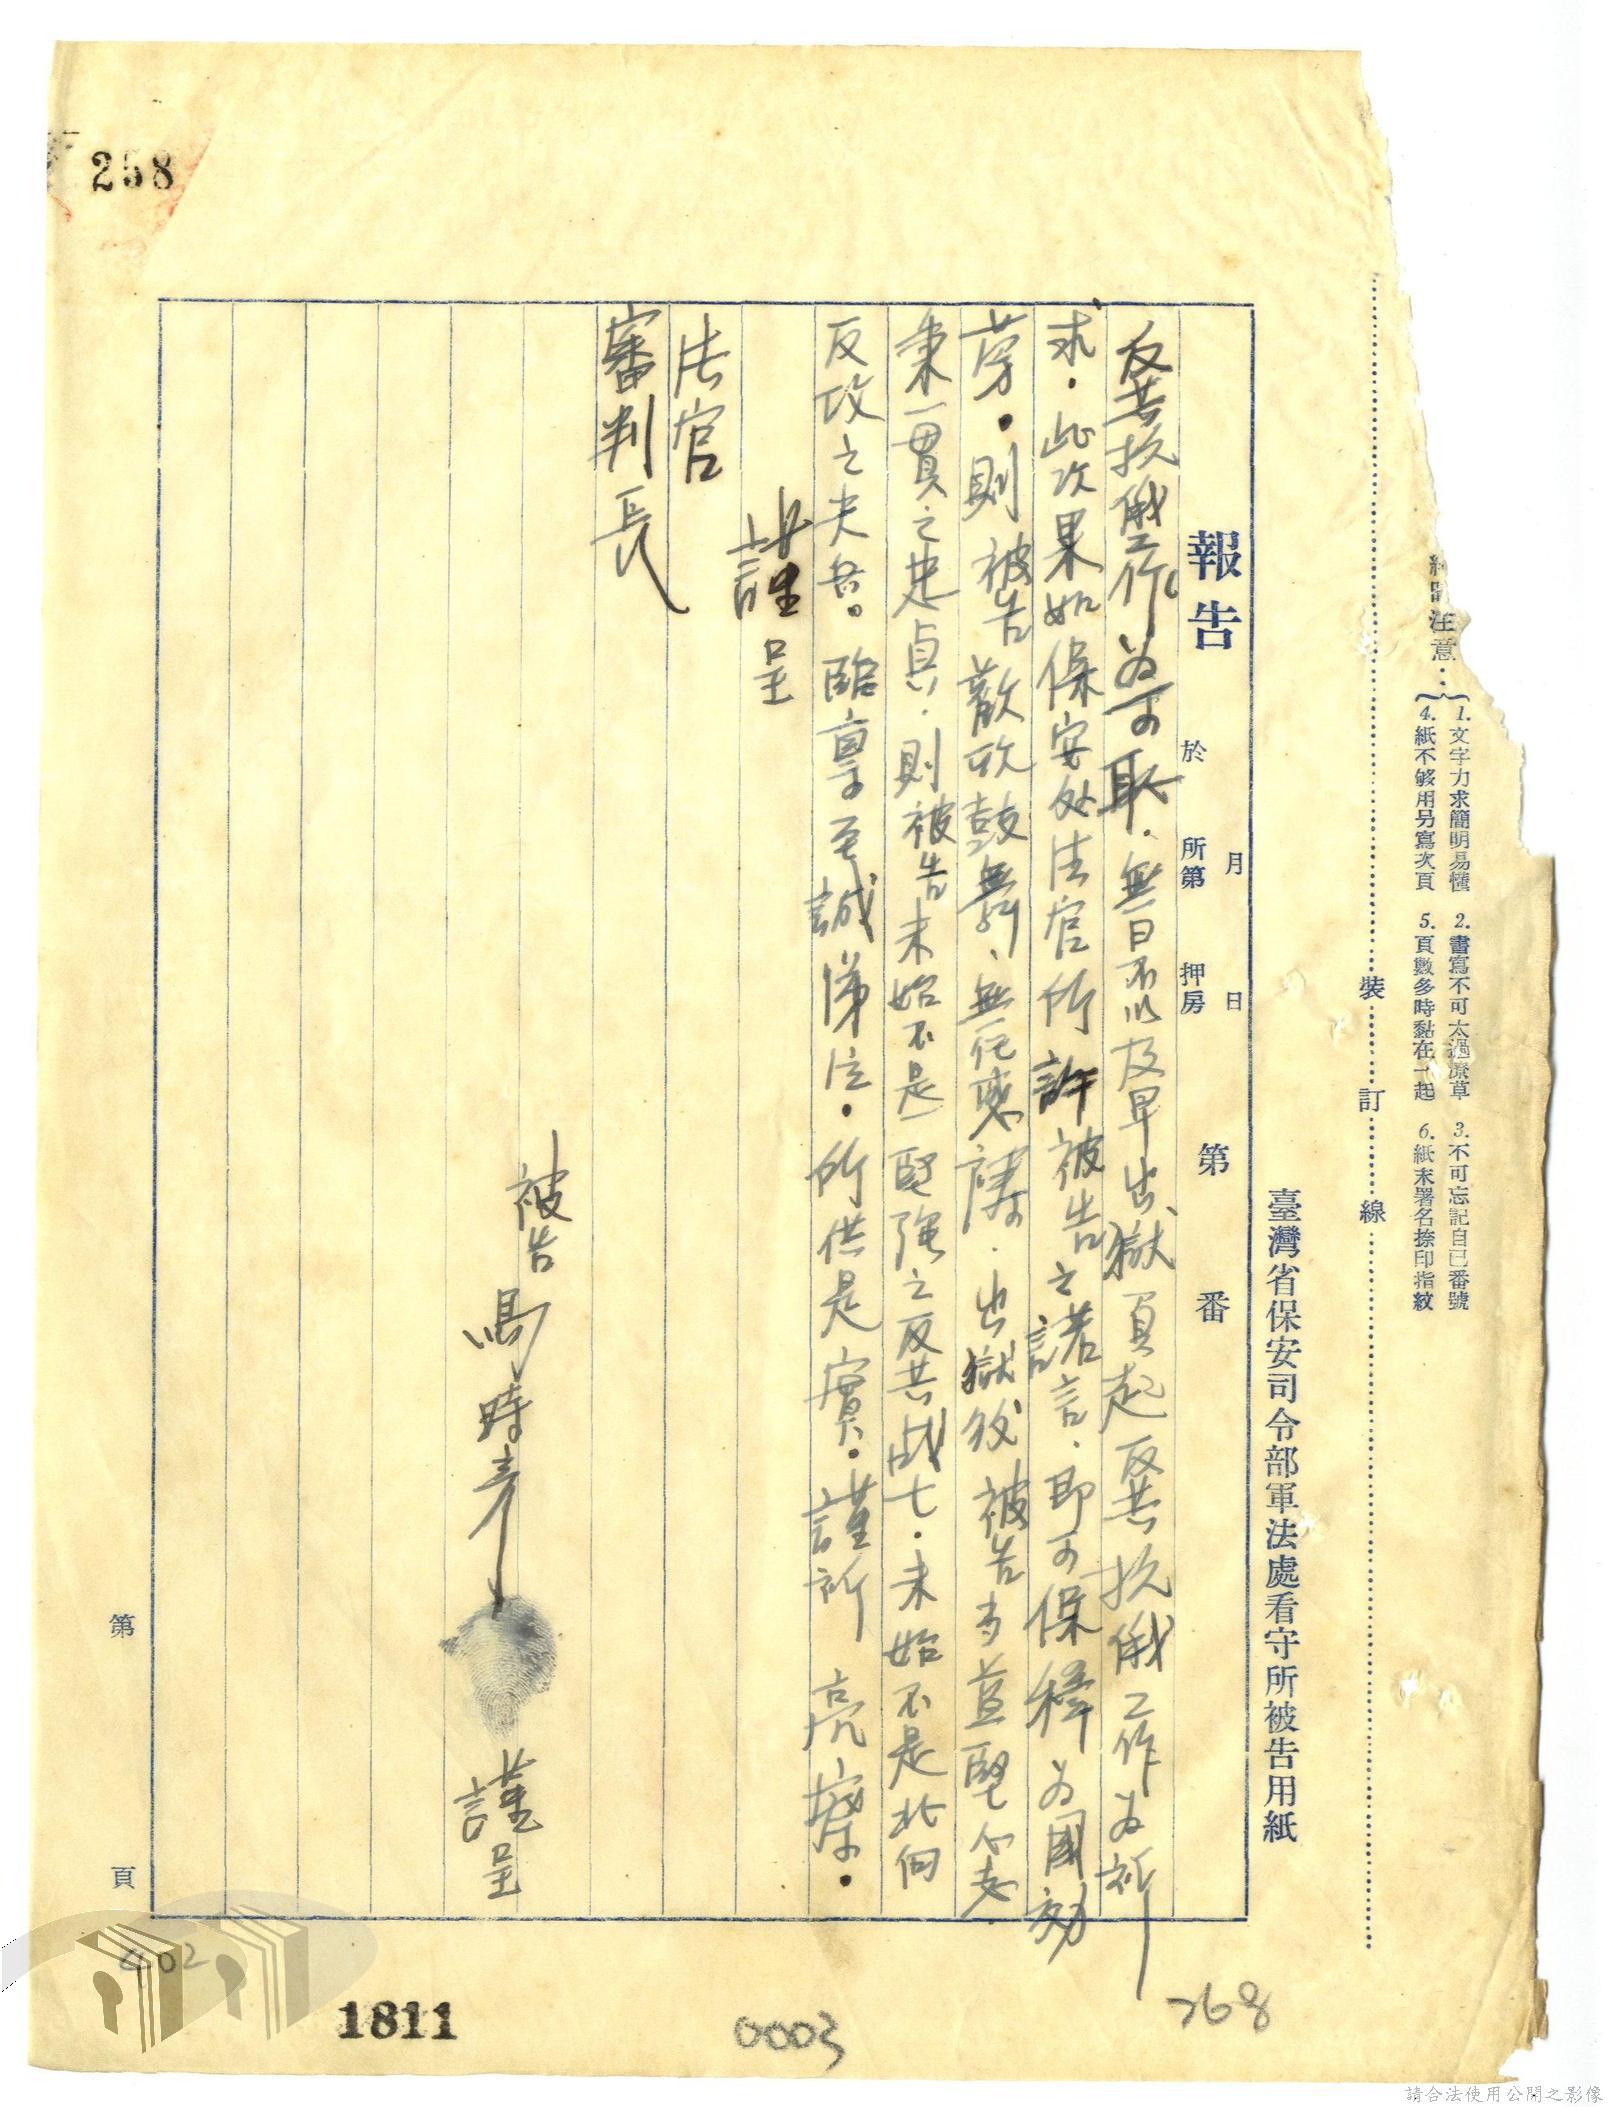 258
1.文字力求簡明易懂 2.書寫不可太過潦草 3.不可忘記自已番號
注意
4.紙不够用另寫次頁 5.頁數多時黏在一起 6.紙末署名捺印指紋
裝 訂 線
臺灣省保安司令部軍法處看守所被告用紙
報告 月 日 第 番
於 所第 押房
反共抗俄工作為可恥．無日不以及早出獄負起反共抗俄工作為祈
求．此次果如保安处法官所許被告之諾言．即可保釋为國効
勞．則被告歡欣鼓舞、無任感禱．出獄後被告当益堅心志
秉一貫之忠貞．則被告未始不是一堅強之反共战士．未始不是北伺
反攻之夫兵。臨稟至誠悌泣．所供是實．謹祈 亮察．
謹呈
法官
審判長
被告 馬時彥 謹呈
第 頁
402
1811
0003
268
請合法使用公開之影像